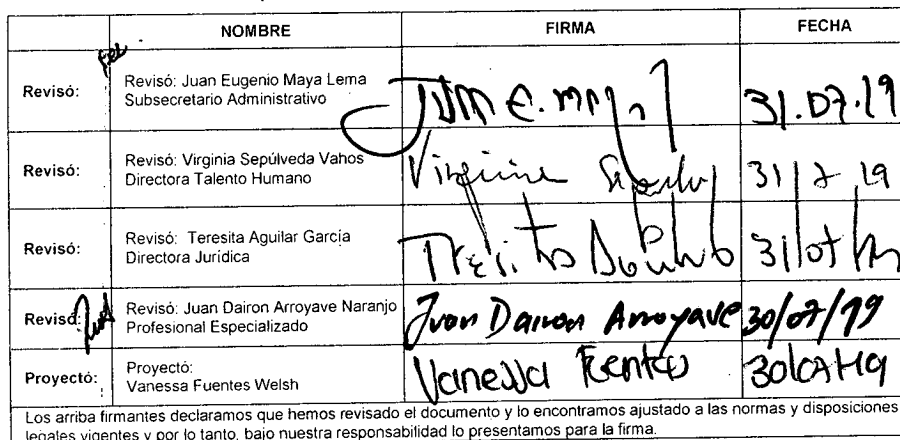 NOMBRE FIRMA FECHA
Revisó: Revisó: Juan Eugenio Maya Lema
Subsecretario Administrativo
31.07.19
Revisó: Revisó: Virginia Sepúlveda Vahos
Directora Talento Humano
Virginia 31/7/19
Revisó: Revisó: Teresita Aguilar García
Directora Jurídica
31/07/19
Revisó: Revisó: Juan Dairon Arroyave Naranjo
Profesional Especializado
Juan Dairon Arroyave 30/07/19
Proyectó: Proyectó:
Vanessa Fuentes Welsh
Vanessa Fuentes 30/07/19
Los arriba firmantes declaramos que hemos revisado el documento y lo encontramos ajustado a las normas y disposiciones
legales vigentes y por lo tanto, bajo nuestra responsabilidad lo presentamos para la firma.